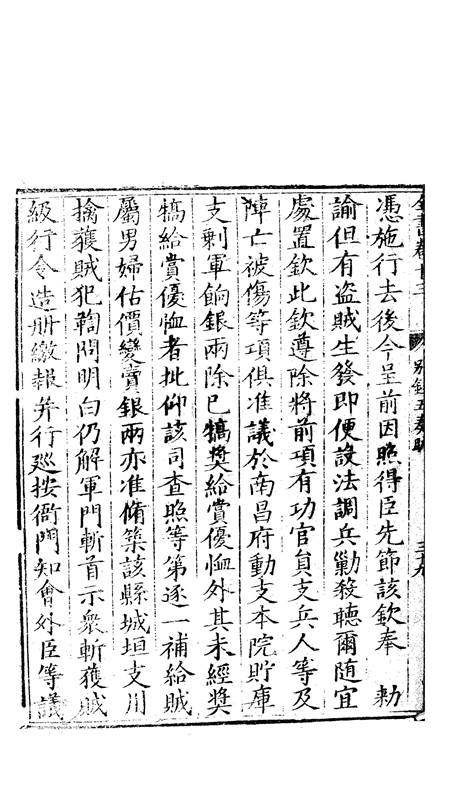 全書卷十三 別錄五奏疏 三十九
憑施行去後今呈前因照得臣先節該欽奉 勑
諭但有盜賊生發即便設法調兵勦殺聽爾随宜
處置欽此欽遵除將前項有功官員支兵人等及
陣亡被傷等項俱准議於南昌府動支本院貯庫
支剩軍餉銀兩除已犒獎給賞優恤外其未經獎
犒給賞優恤者批仰該司查照等第逐一補給賊
屬男婦估價變賣銀兩亦准脩築該縣城垣支用
擒獲賊犯鞫問明白仍解軍門斬首示衆斬獲賊
級行令造册繳報并行廵按衙門知會外臣等議